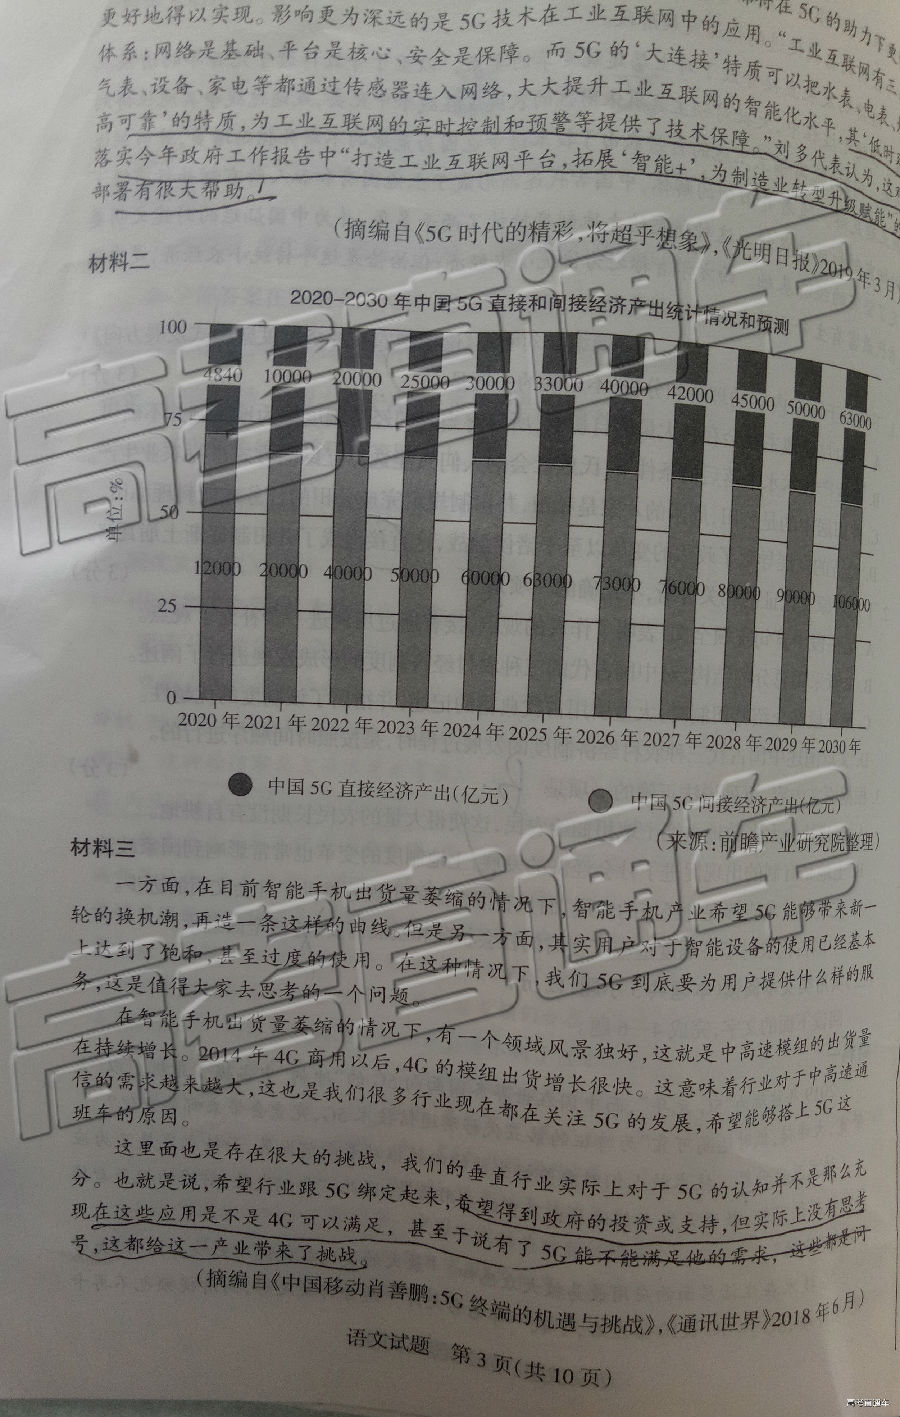 更好地得以实现。影响更为深远的是 5G 技术在工业互联网中的应用。“工业互联网有三
体系:网络是基础、平台是核心、安全是保障。而 5G 的‘大连接’特质可以把水表、电表、
气表、设备、家电等都通过传感器连入网络,大大提升工业互联网的智能化水平,其‘低时
高可靠’的特质,为工业互联网的实时控制和预警等提供了技术保障。”刘多代表认为,这
落实今年政府工作报告中“打造工业互联网平台,拓展‘智能+’,为制造业转型升级赋能”的
部署有很大帮助。
(摘编自《5G 时代的精彩,将超乎想象》,《光明日报》2019年3月
材料二
2020-2030 年中国 5G 直接和间接经济产出统计情况和预测
单位:%
100
75
50
25
0
4840 10000 20000 25000 30000 33000 40000 42000 45000 50000 63000
12000 20000 40000 50000 60000 63000 73000 76000 80000 90000 106000
2020 年 2021 年 2022 年 2023 年 2024 年 2025 年 2026 年 2027 年 2028 年 2029 年 2030 年
中国 5G 直接经济产出(亿元)
中国 5G 间接经济产出(亿元)
(来源:前瞻产业研究院整理)
材料三
一方面,在目前智能手机出货量萎缩的情况下,智能手机产业希望 5G 能够带来新一
轮的换机潮,再造一条这样的曲线。但是另一方面,其实用户对于智能设备的使用已经基本
上达到了饱和、甚至过度的使用。在这种情况下,我们 5G 到底要为用户提供什么样的服
务,这是值得大家去思考的一个问题。
在智能手机出货量萎缩的情况下,有一个领域风景独好,这就是中高速模组的出货量
在持续增长。2014 年 4G 商用以后,4G 的模组出货增长很快。这意味着行业对于中高速通
信的需求越来越大,这也是我们很多行业现在都在关注 5G 的发展,希望能够搭上 5G 这
班车的原因。
这里面也是存在很大的挑战,我们的垂直行业实际上对于 5G 的认知并不是那么充
分。也就是说,希望行业跟 5G 绑定起来,希望得到政府的投资或支持,但实际上没有思考
现在这些应用是不是 4G 可以满足,甚至于说有了 5G 能不能满足他的需求,这些都是问
号,这都给这一产业带来了挑战。
(摘编自《中国移动肖善鹏:5G 终端的机遇与挑战》,《通讯世界》2018 年 6 月)
语文试题 第 3 页(共 10 页)
高考直通车
高考直通车
高考直通车